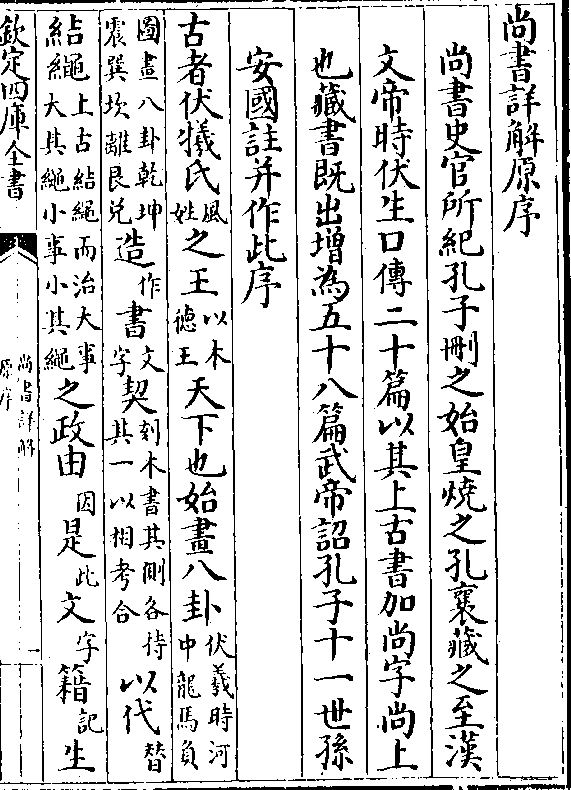 尚書詳解原序
尚書史官所紀孔子刪之始皇燒之孔襄藏之至漢
文帝時伏生口傳二十篇以其上古書加尚字尚上
也藏書既出增為五十八篇武帝詔孔子十一世孫
安國註并作此序
古者伏犧氏風姓之王以木德王天下也始畫八卦伏羲時河中龍馬負
圖畫八卦乾坤震巽坎離艮兌造作書文字契刻木書其側各持其一以相考合以代替
結繩上古結繩而治大事大其繩小事小其繩之政由因是此文字籍記生
欽定四庫全書
尚書詳解
原序